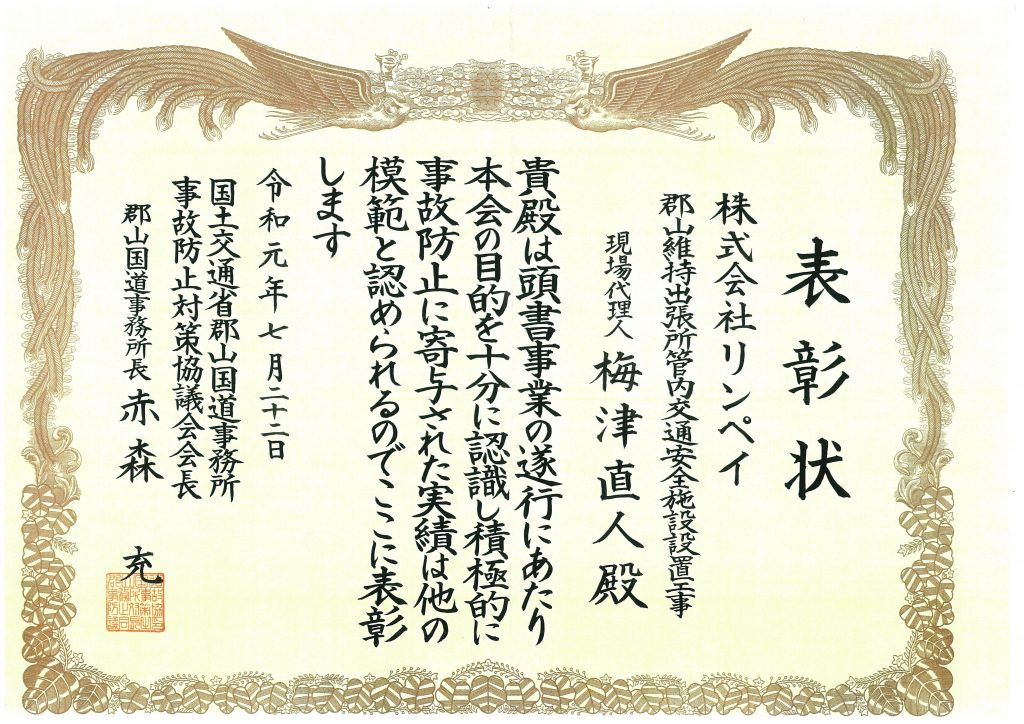 表彰状
株式会社リンペイ
郡山維持出張所管内交通安全施設設置工事
現場代理人 梅津直人殿
貴殿は頭書事業の遂行にあたり
本会の目的を十分に認識し積極的に
事故防止に寄与された実績は他の
模範と認められるのでここに表彰
します
令和元年七月二十二日
国土交通省郡山国道事務所
事故防止対策協議会会長
郡山国道事務所長 赤森 充